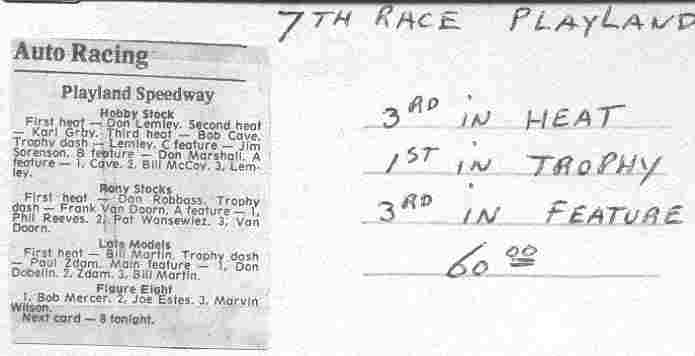 7TH RACE PLAYLAND
Auto Racing
Playland Speedway
Hobby Stock
First heat — Don Lemley. Second heat
— Karl Grby. Third heat — Bob Cave.
Trophy dash — Lemley. C feature — Jim
Sorenson. B feature — Don Marshall. A
feature — 1. Cave. 2. Bill McCoy. 3. Lem-
ley.
Pony Stocks
First heat — Don Robbass. Trophy
dash — Frank Van Doorn. A feature — 1.
Phil Reeves. 2. Pat Wansewiez. 3. Van
Doorn.
Late Models
First heat — Bill Martin. Trophy dash
— Paul Zdam. Main feature — 1. Don
Dobelin. 2. Zdam. 3. Bill Martin.
Figure Eight
1. Bob Mercer. 2. Joe Estes. 3. Marvin
Wilson.
Next card — 8 tonight.
3RD IN HEAT
1ST IN TROPHY
3RD IN FEATURE
60 00